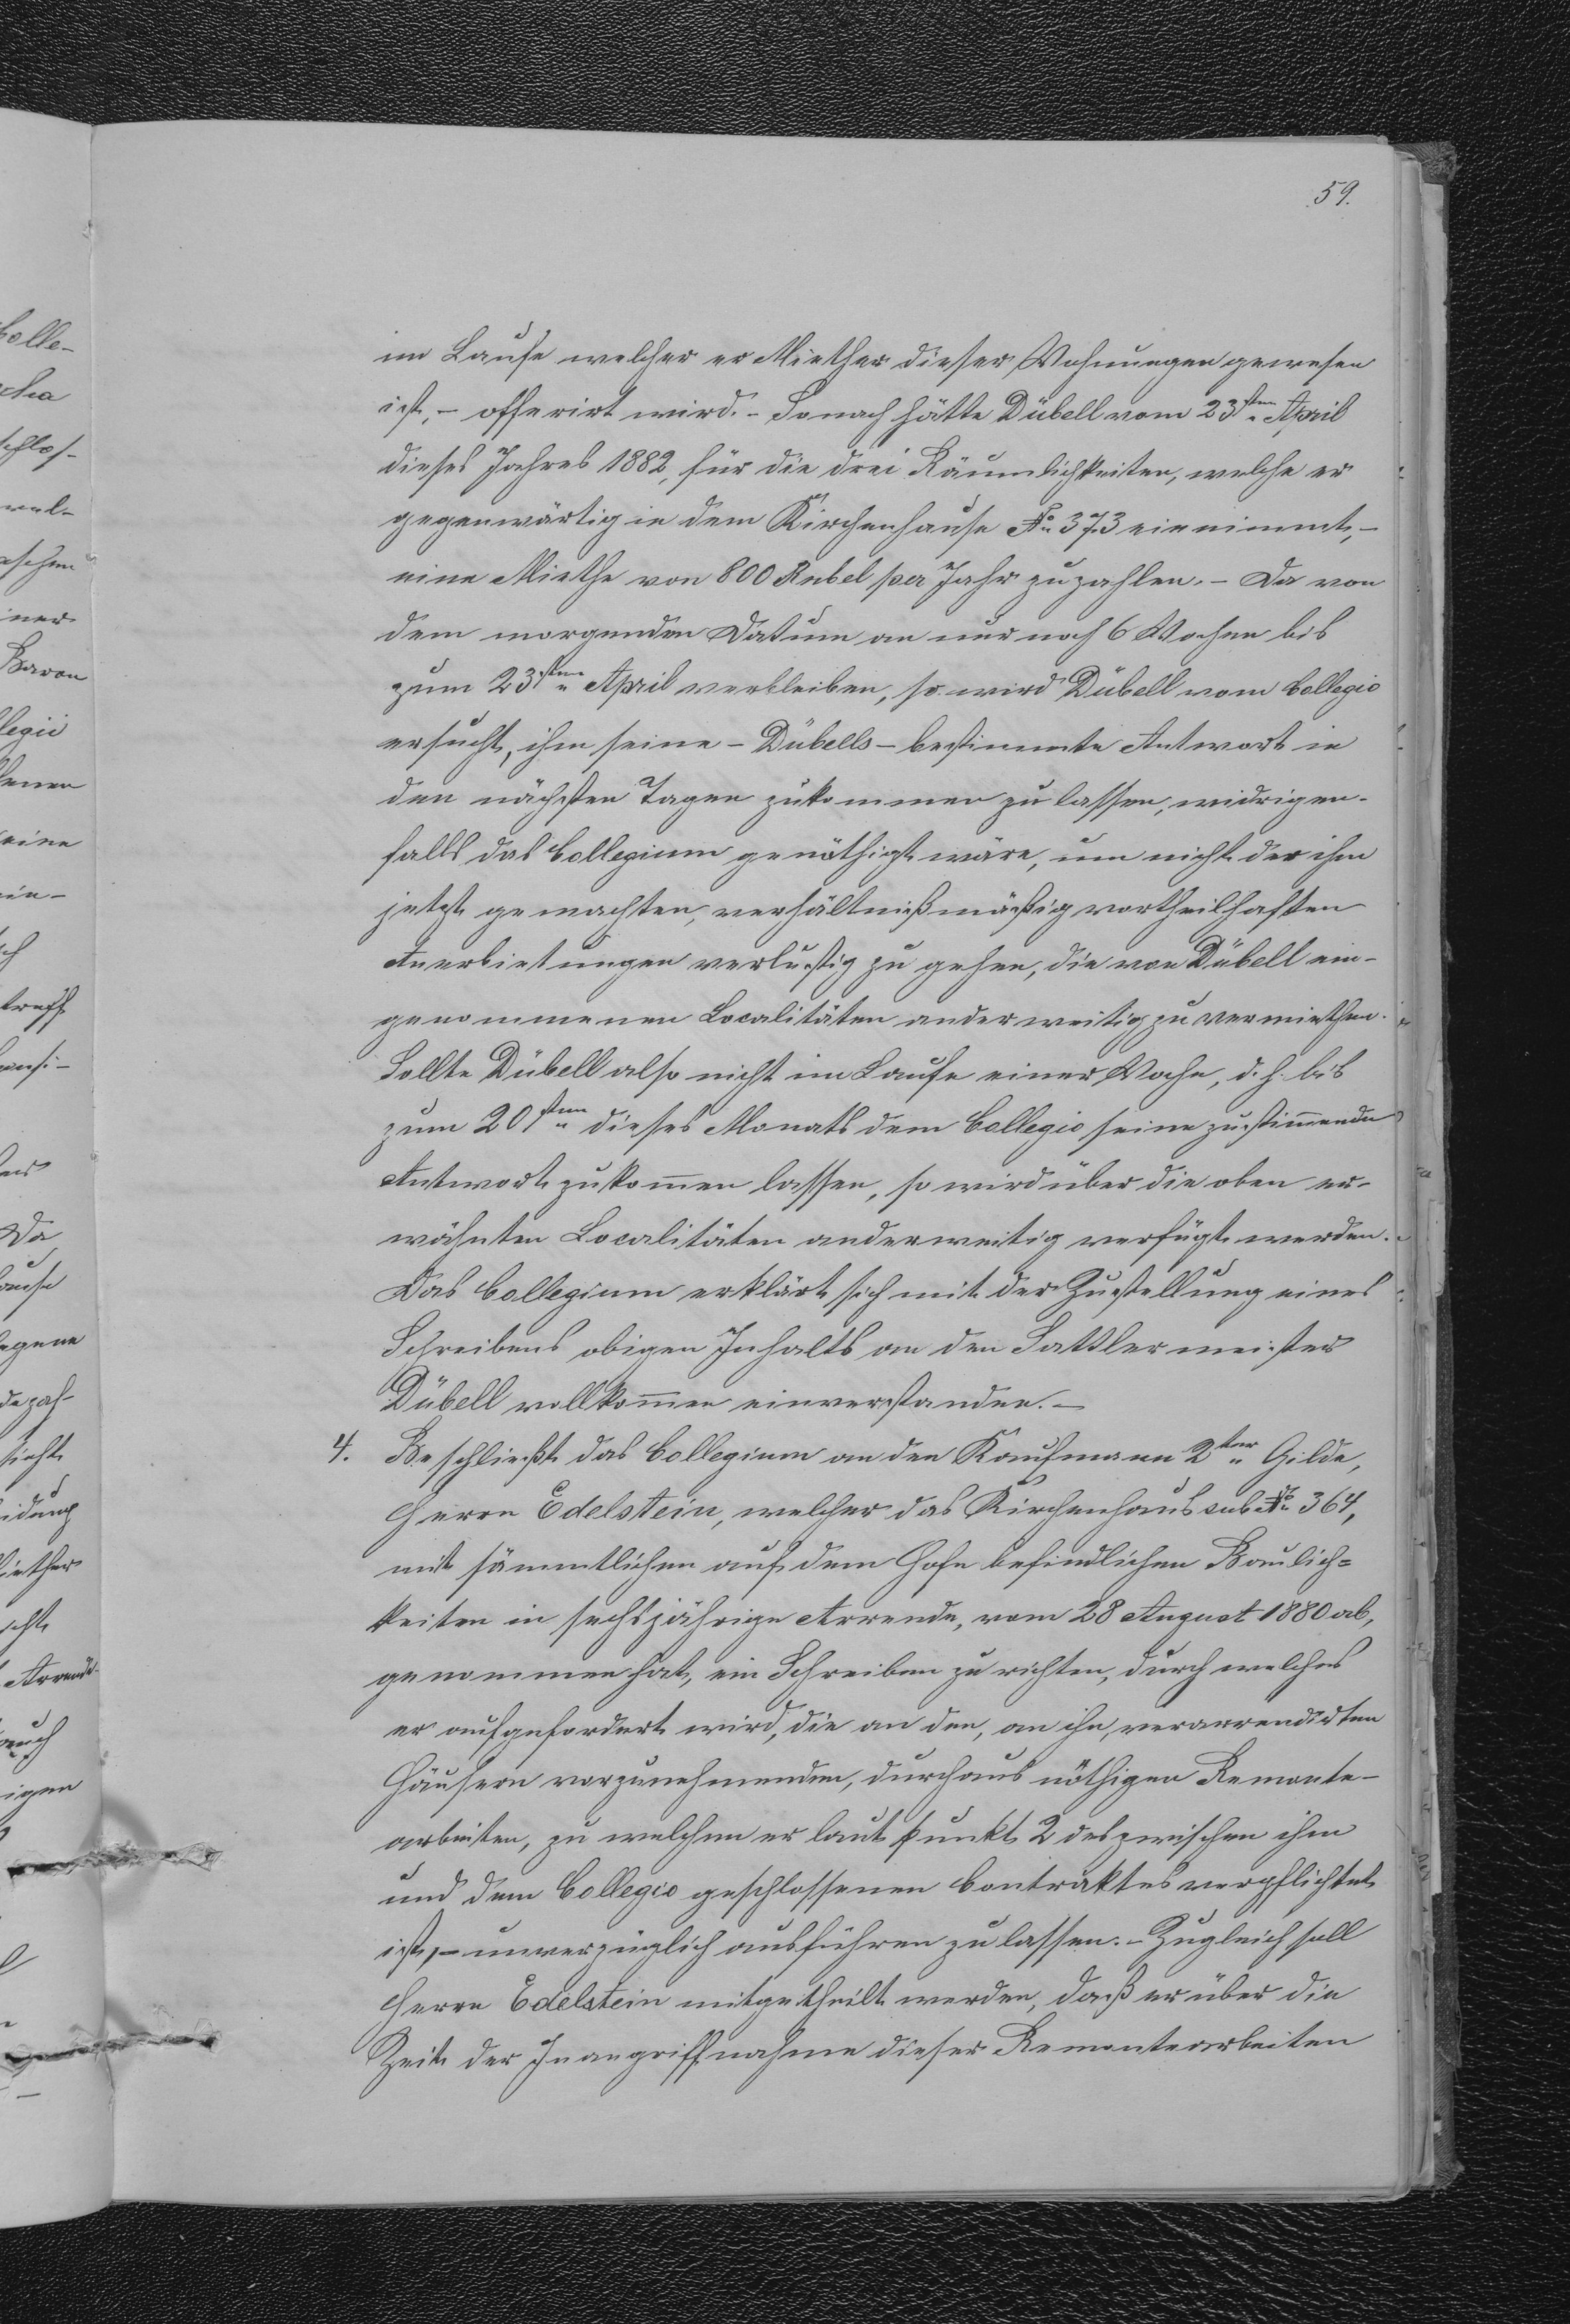 59.
im Laufe welcher er Miether dieser Wohnungen gewesen
ist, – offerirt wird. – Sonach hätte Dübell vom 23sten April
dieses Jahres 1882, für die drei Räumlichkeiten, welche er
gegenwärtig in dem Kirchenhause No 373 einnimmt, –
eine Miethe von 800 Rubel per Jahr zu zahlen. – Da von
dem morgenden Datum an nur noch 6 Wochen bis
zum 23sten April verbleiben, so wird Dübell vom Collegio
ersucht, ihm seine – Dübells – bestimmte Antwort in
den nächsten Tagen zukommen zu lassen, widrigen-
falls das Collegium genöthigt wäre, um nicht der ihm
jetzt gemachten, verhältnißmäßig vortheilhaften
Anerbietungen verlustig zu gehen, die von Dübell ein-
genommenen Localitäten anderweitig zu vermiethen.
Sollte Dübell also nicht im Laufe einer Woche, d. h. bis
zum 20sten dieses Monats dem Collegio seine zustimmende
Antwort zukommen lassen, so wird über die oben er-
wähnten Localitäten anderweitig verfügt werden.
Das Collegium erklärt sich mit der Zustellung eines
Schreibens obigen Inhalts an den Sattlermeister
Dübell vollkommen einverstanden. –
4. Beschließt das Collegium an den Kaufmann 2ter Gilde,
Herrn Edelstein, welcher das Kirchenhaus sub No 364,
mit sämmtlichen auf dem Hofe befindlichen Baulich-
keiten in sechsjährige Arrende, vom 28 August 1880 ab,
genommen hat, ein Schreiben zu richten, durch welches
er aufgefordert wird, die an den, an ihn, verarrendirten
Häusern vorzunehmenden, durchaus nöthigen Remonte-
arbeiten, zu welchen er laut Punkt 2 des zwischen ihm
und dem Collegio geschlossenen Contraktes verpflichtet
ist, – unverzüglich ausführen zu lassen. – Zugleich soll
Herrn Edelstein mitgetheilt werden, daß er über die
Zeit der Inangriffnahme dieser Remontearbeiten